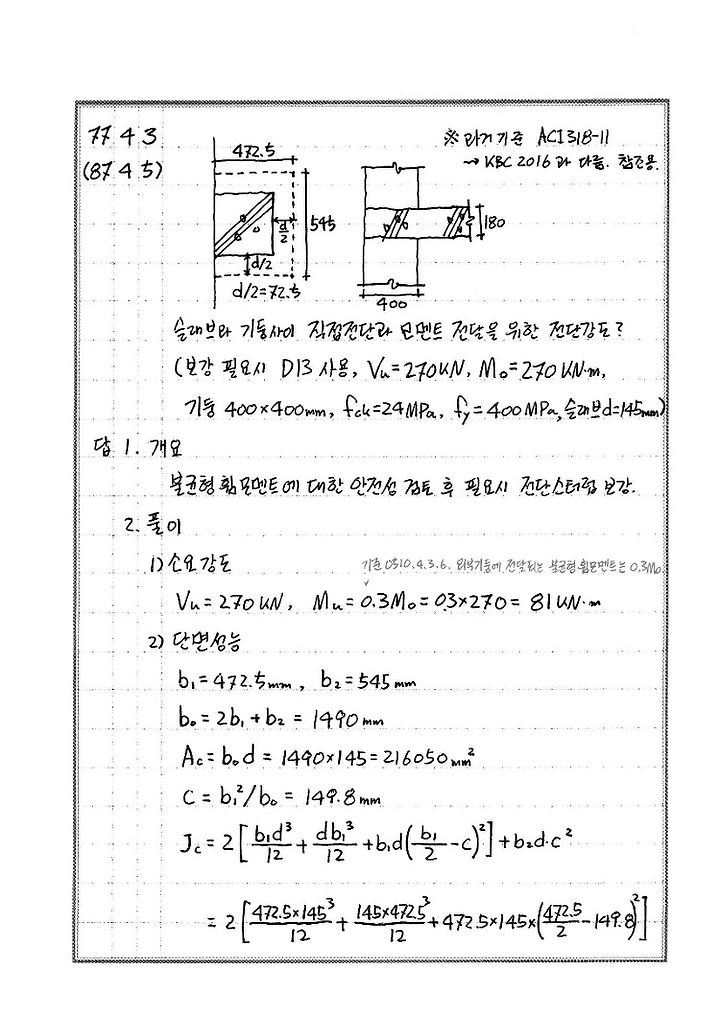 77 4 3
(87 4 5)
※ 과거기준 ACI 318-11
→ KBC 2016과 다름. 참고용.
472.5
545
d/2
d/2
d/2=72.5
180
400
슬래브와 기둥사이 직접전단과 모멘트 전달을 위한 전단강도?
(보강 필요시 D13 사용, Vu=270kN, Mo=270kN·m,
기둥 400×400mm, fck=24MPa, fy=400MPa, 슬래브d=145mm)
답 1. 개요
불균형 휨모멘트에 대한 안전성 검토 후 필요시 전단스터럽 보강.
2. 풀이
1) 소요강도
기준 0310.4.3.6. 외부기둥에 전달되는 불균형휨모멘트는 0.3Mo
Vu = 270kN, Mu = 0.3Mo = 0.3×270 = 81kN·m
2) 단면성능
b₁ = 472.5mm, b₂ = 545mm
b₀ = 2b₁ + b₂ = 1490mm
Ac = b₀d = 1490×145 = 216050mm²
C = b₁²/b₀ = 149.8mm
Jc = 2[b₁d³/12 + db₁³/12 + b₁d(b₁/2 - c)²] + b₂d·c²
= 2[472.5×145³/12 + 145×472.5³/12 + 472.5×145×(472.5/2 - 149.8)²]